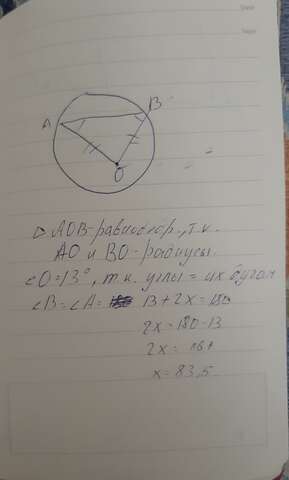 A
B
O
△ AOB-равнобер., т.к.
AO и BO-радиусы.
∠O=13°, т.к. углы = их дугам
∠B=∠A= 13+2x=180
2x=180-13
2x=167
x=83,5